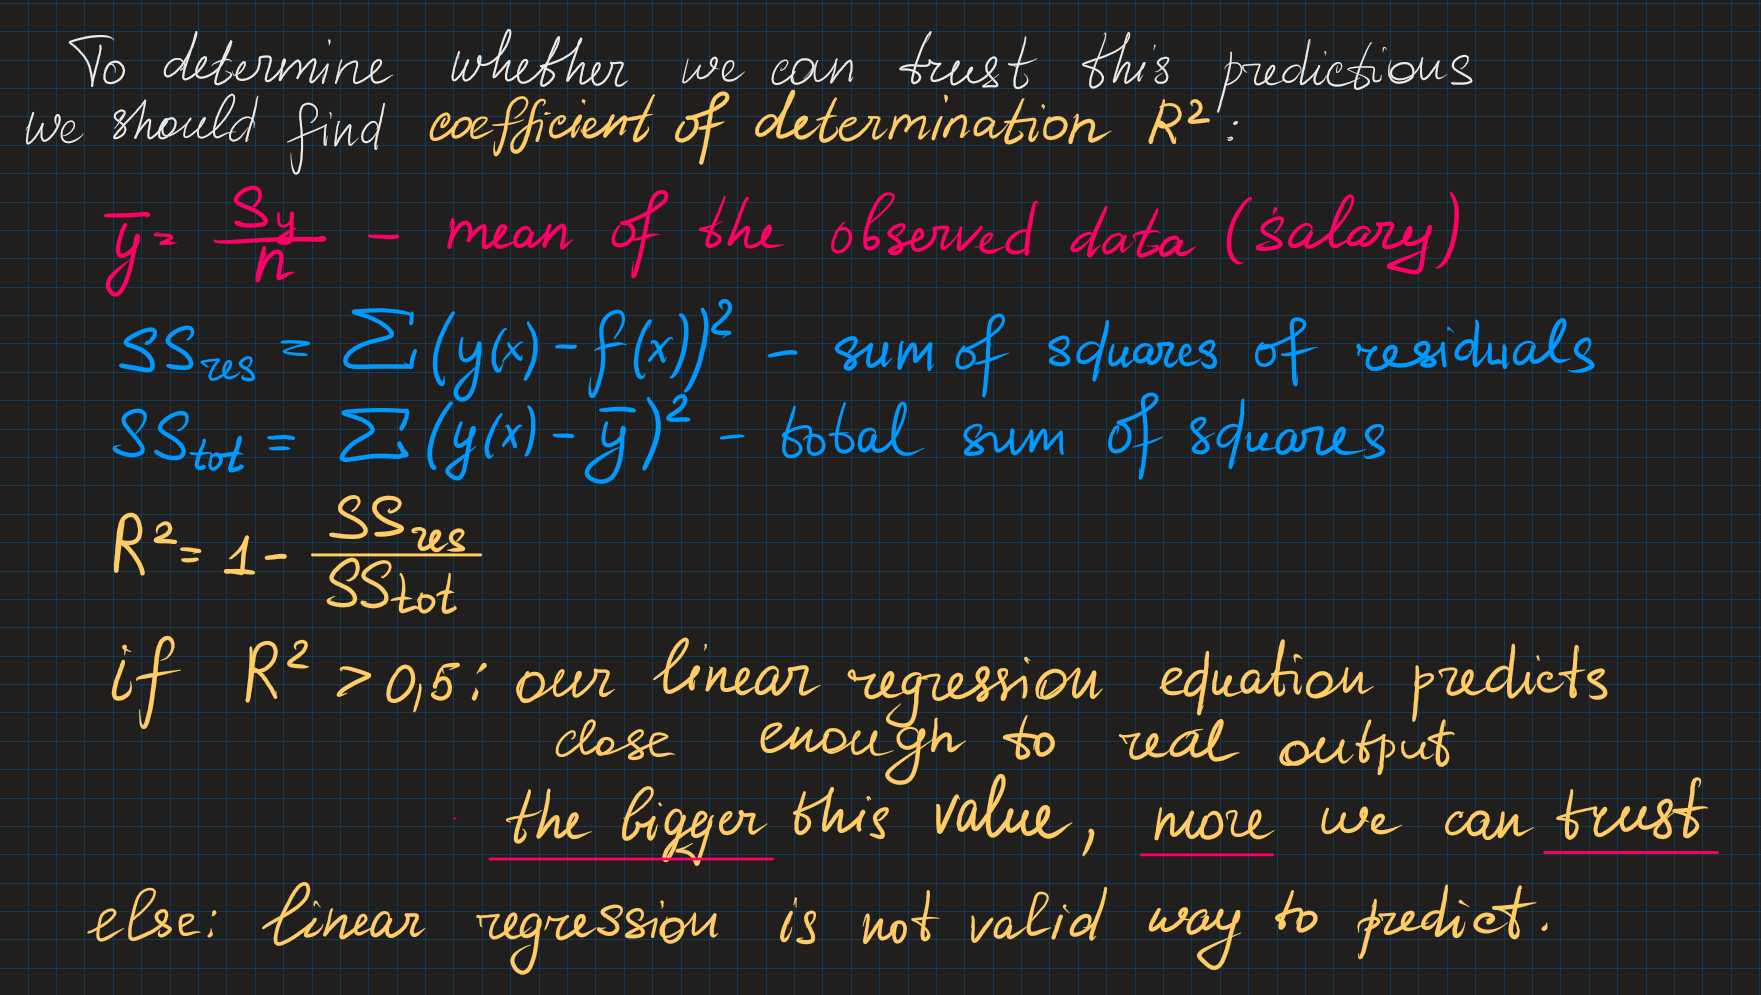 To determine whether we can trust this predictions
we should find coefficient of determination R²:
ȳ = Sy/n – mean of the observed data (salary)
SSres = Σ(y(x) – f(x))² – sum of squares of residuals
SStot = Σ(y(x) – ȳ)² – total sum of squares
R² = 1 – SSres/SStot
if R² > 0,5: our linear regression equation predicts
close enough to real output
the bigger this value, more we can trust
else: linear regression is not valid way to predict.